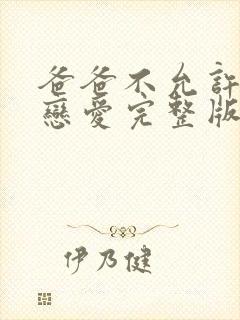 爸爸不允許
戀愛完整版
伊乃健